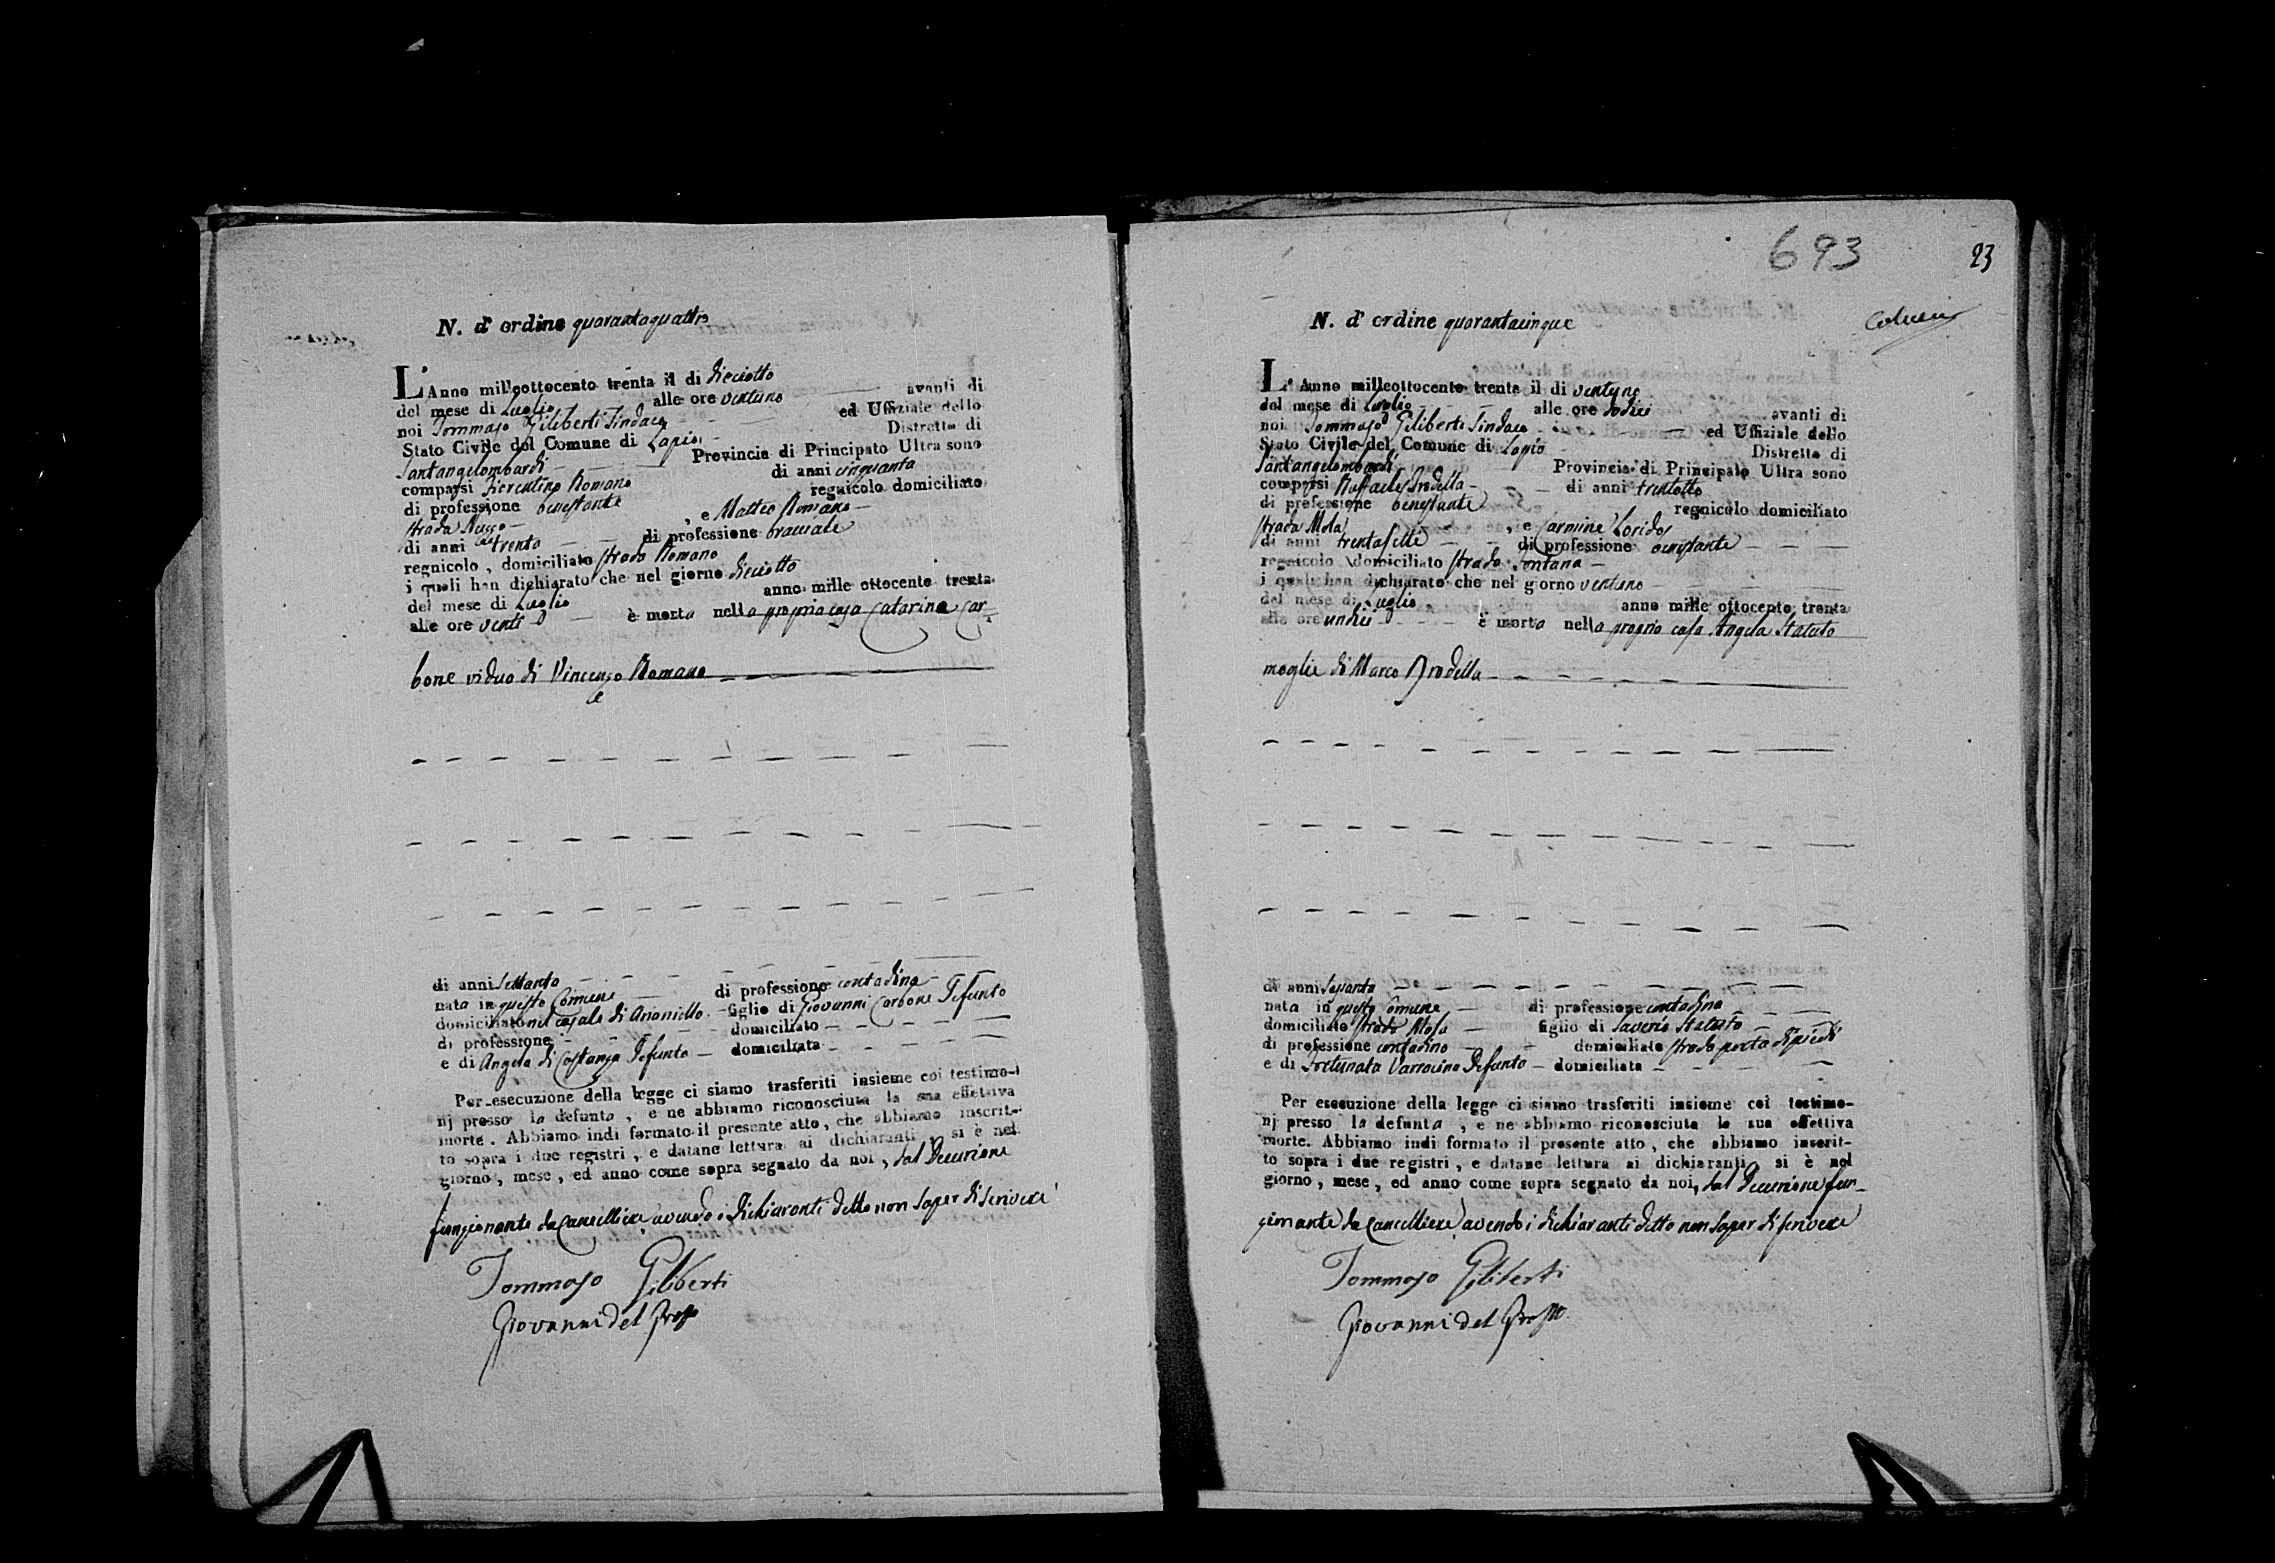 N. d' ordine quarantaquattro
L' Anno milleottocento trenta il di dieciotto
del mese di Luglio alle ore ventuno avanti di
noi Tommaso Giliberti Sindaco ed Uffiziale dello
Stato Civile del Comune di Lapio Distretto di
Santangelombardi Provincia di Principato Ultra sono
comparsi Fiorentino Romano di anni cinquanta
di professione benestante regnicolo domiciliato
strada , e Matteo Romano
di anni trenta di professione bracciale
regnicolo , domiciliato strada Romano
i quali han dichiarato che nel giorno dieciotto
del mese di Luglio anno mille ottocento trenta
alle ore venti è morta nella propria casa Catarina Car-
bone vidua di Vincenzo Romano
di anni settanta di professione contadina
nata in questo Comune figlio di Giovanni Carbone Defunto
domiciliato nel casale di Arianiello
di professione domiciliato
e di Angela di Costanza Defunta domiciliata
Per esecuzione della legge ci siamo trasferiti insieme coi testimo-
nj presso la defunta , e ne abbiamo riconosciuta la sua effettiva
morte . Abbiamo indi formato il presente atto , che abbiamo inscrit-
to sopra i due registri , e datane lettura ai dichiaranti , si è nel
giorno , mese , ed anno come sopra segnato da noi , dal Decurione
funzionante da Cancelliere avendo i dichiaranti detto non saper di scrivere
Tommaso Giliberti
Giovanni del Grosso
693
23
N. d' ordine quarantacinque
L' Anno milleottocento trenta il di ventuno
del mese di Luglio alle ore dodici avanti di
noi Tommaso Giliberti Sindaco ed Uffiziale dello
Stato Civile del Comune di Lapio Distretto di
Santangelombardi Provincia di Principato Ultra sono
comparsi Raffaele Brodella di anni trentotto
di professione benestante regnicolo domiciliato
strada Mola , e Carmine
di anni trentasette di professione benestante
regnicolo domiciliato strada Fontana
i quali han dichiarato che nel giorno ventuno
del mese di Luglio anno mille ottocento trenta
alle ore undici è morta nella propria casa Angela Statuto
moglie di Marco Brodella
di anni sessanta
nata in questo Comune di professione contadina
domiciliato strada Mola figlio di Saverio Statuto
di professione contadino domiciliato strada porta di piedi
e di Fortunata Defunta domiciliata
Per esecuzione della legge ci siamo trasferiti insieme coi testimo-
nj presso la defunta , e ne abbiamo riconosciuta la sua effettiva
morte. Abbiamo indi formato il presente atto , che abbiamo inscrit-
to sopra i due registri , e datane lettura ai dichiaranti si è nel
giorno , mese , ed anno come sopra segnato da noi, dal Decurione fun-
zionante da Cancelliere avendo i dichiaranti detto non saper di scrivere
Tommaso Giliberti
Giovanni del Grosso